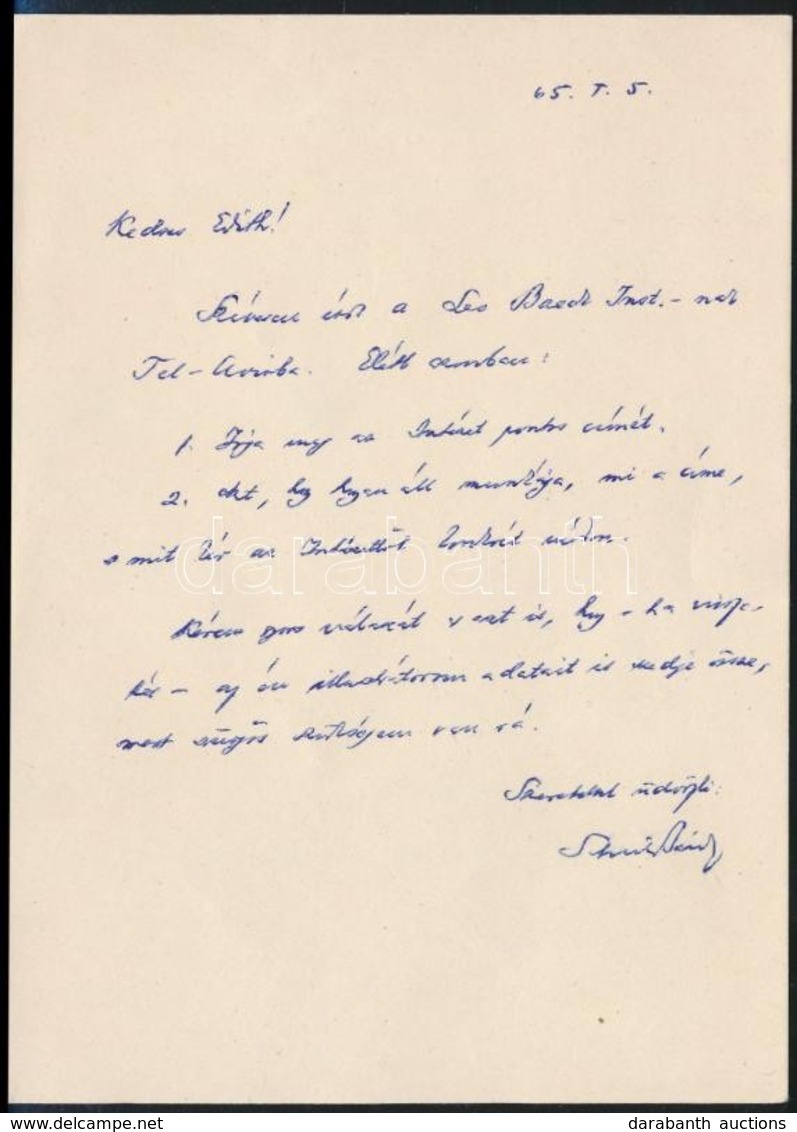 65. I. 5.
Kedves Edith!
Szívesen írok a Leo Baeck Inst.-nak
Tel-Avivba. Előbb azonban:
1. Írja meg az Intézet pontos címét.
2. Azt, hogy hogyan áll munkája, mi a címe,
s mit kér az Intézettől konkrét módon.
Kérem gyors válaszát s azt is, hogy - ha vissza-
tér - az én adatait is szedje össze,
mert sürgős szükségem van rá.
Szeretettel üdvözli:
darabanth
darabanth auctions